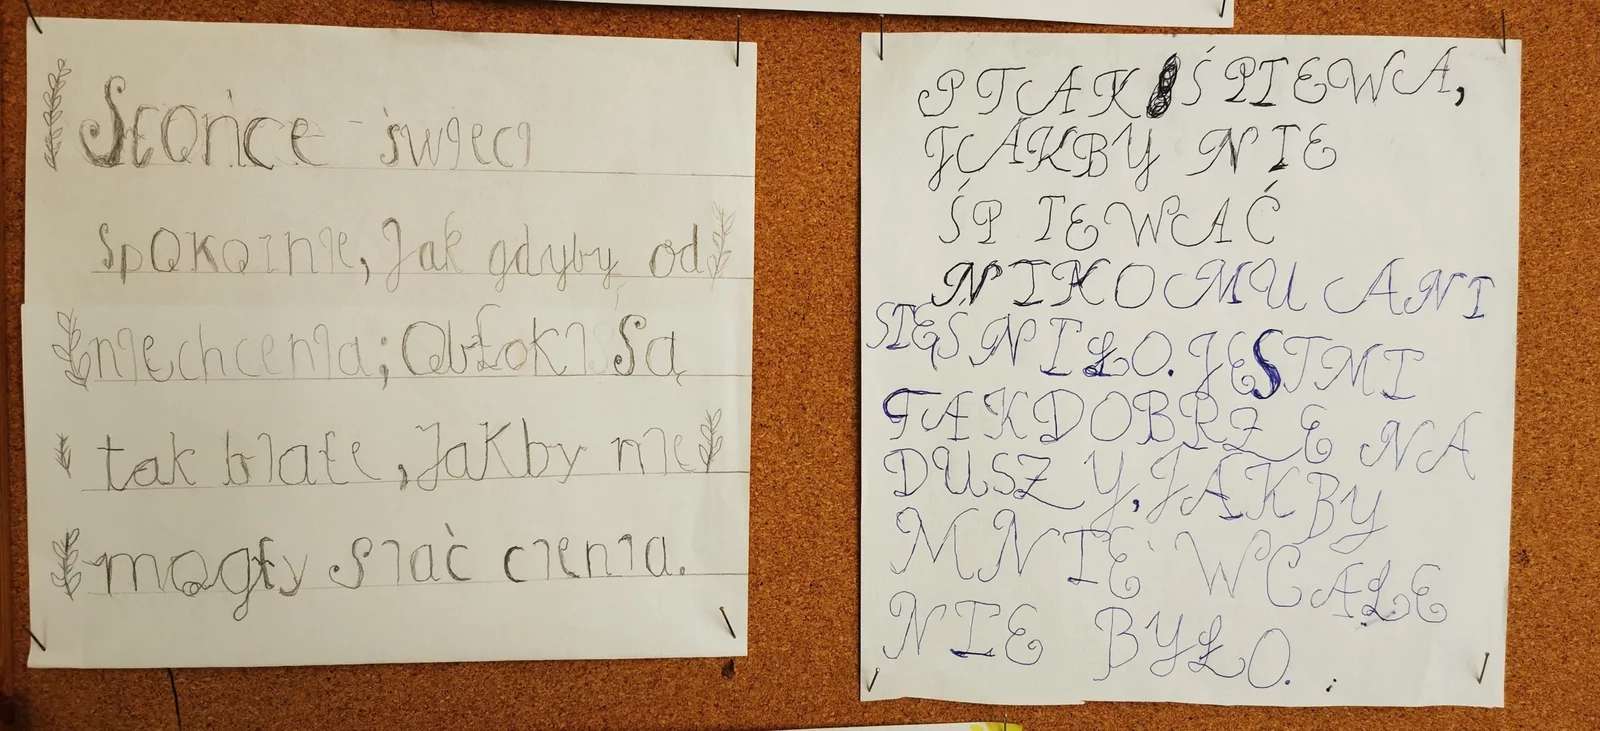 Słońce świeci
spokojnie, jak gdyby od
niechcenia; Obłoki są
tak białe, jakby nie
mogły siać cienia.
PTAK ŚPIEWA,
JAKBY NIE
ŚPIEWAĆ
NIKOMU ANI
SIĘ ŚNIŁO. JEST MI
TAK DOBRZE NA
DUSZY, JAKBY
MNIE WCALE
NIE BYŁO.